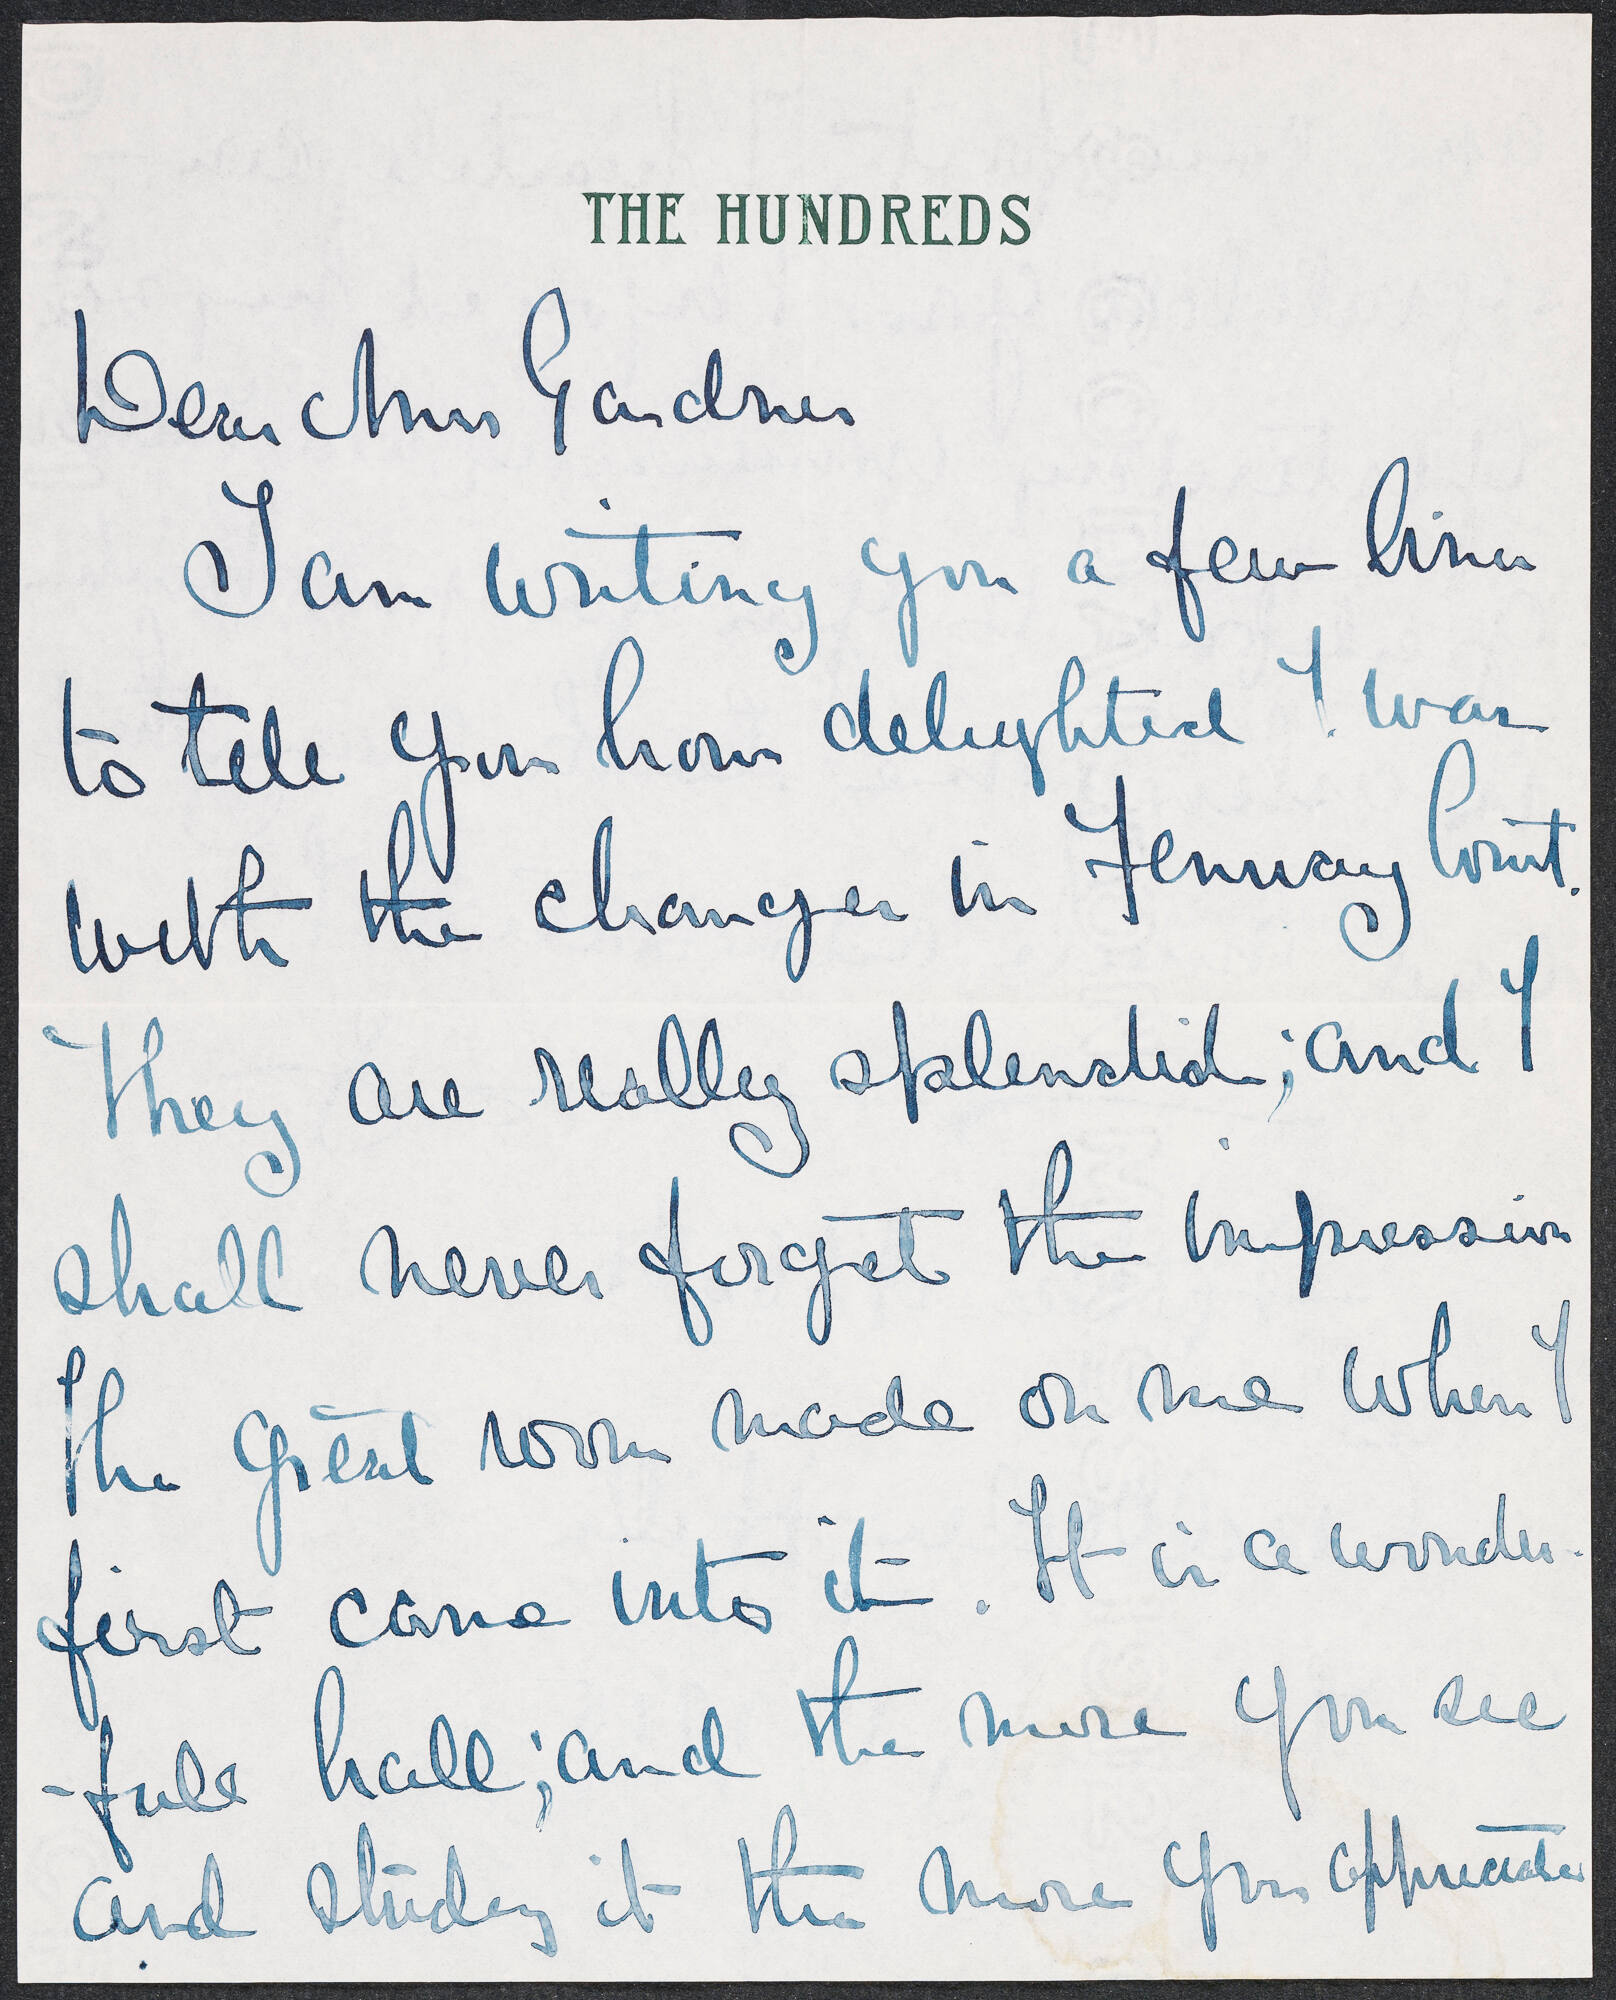 THE HUNDREDS
Dear Mrs Gardner
I am writing you a few lines
to tell you how delighted I was
with the changes in Fenway Court.
They are really splendid; and I
shall never forget the impression
the great room made on me when I
first came into it. It is a wonder-
-full hall; and the more you see
and study it the more you appreciate